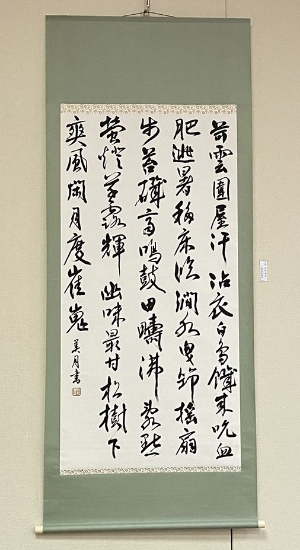 雲圍屋汗沾衣白鳥饑來吮血
肥逃暑移床臨澗水曳筇搖扇
步苔磯高鳴鼓田疇沸亂點
螢燈草露輝幽味最甘松樹下
爽風閑月度崔嵬 美月書